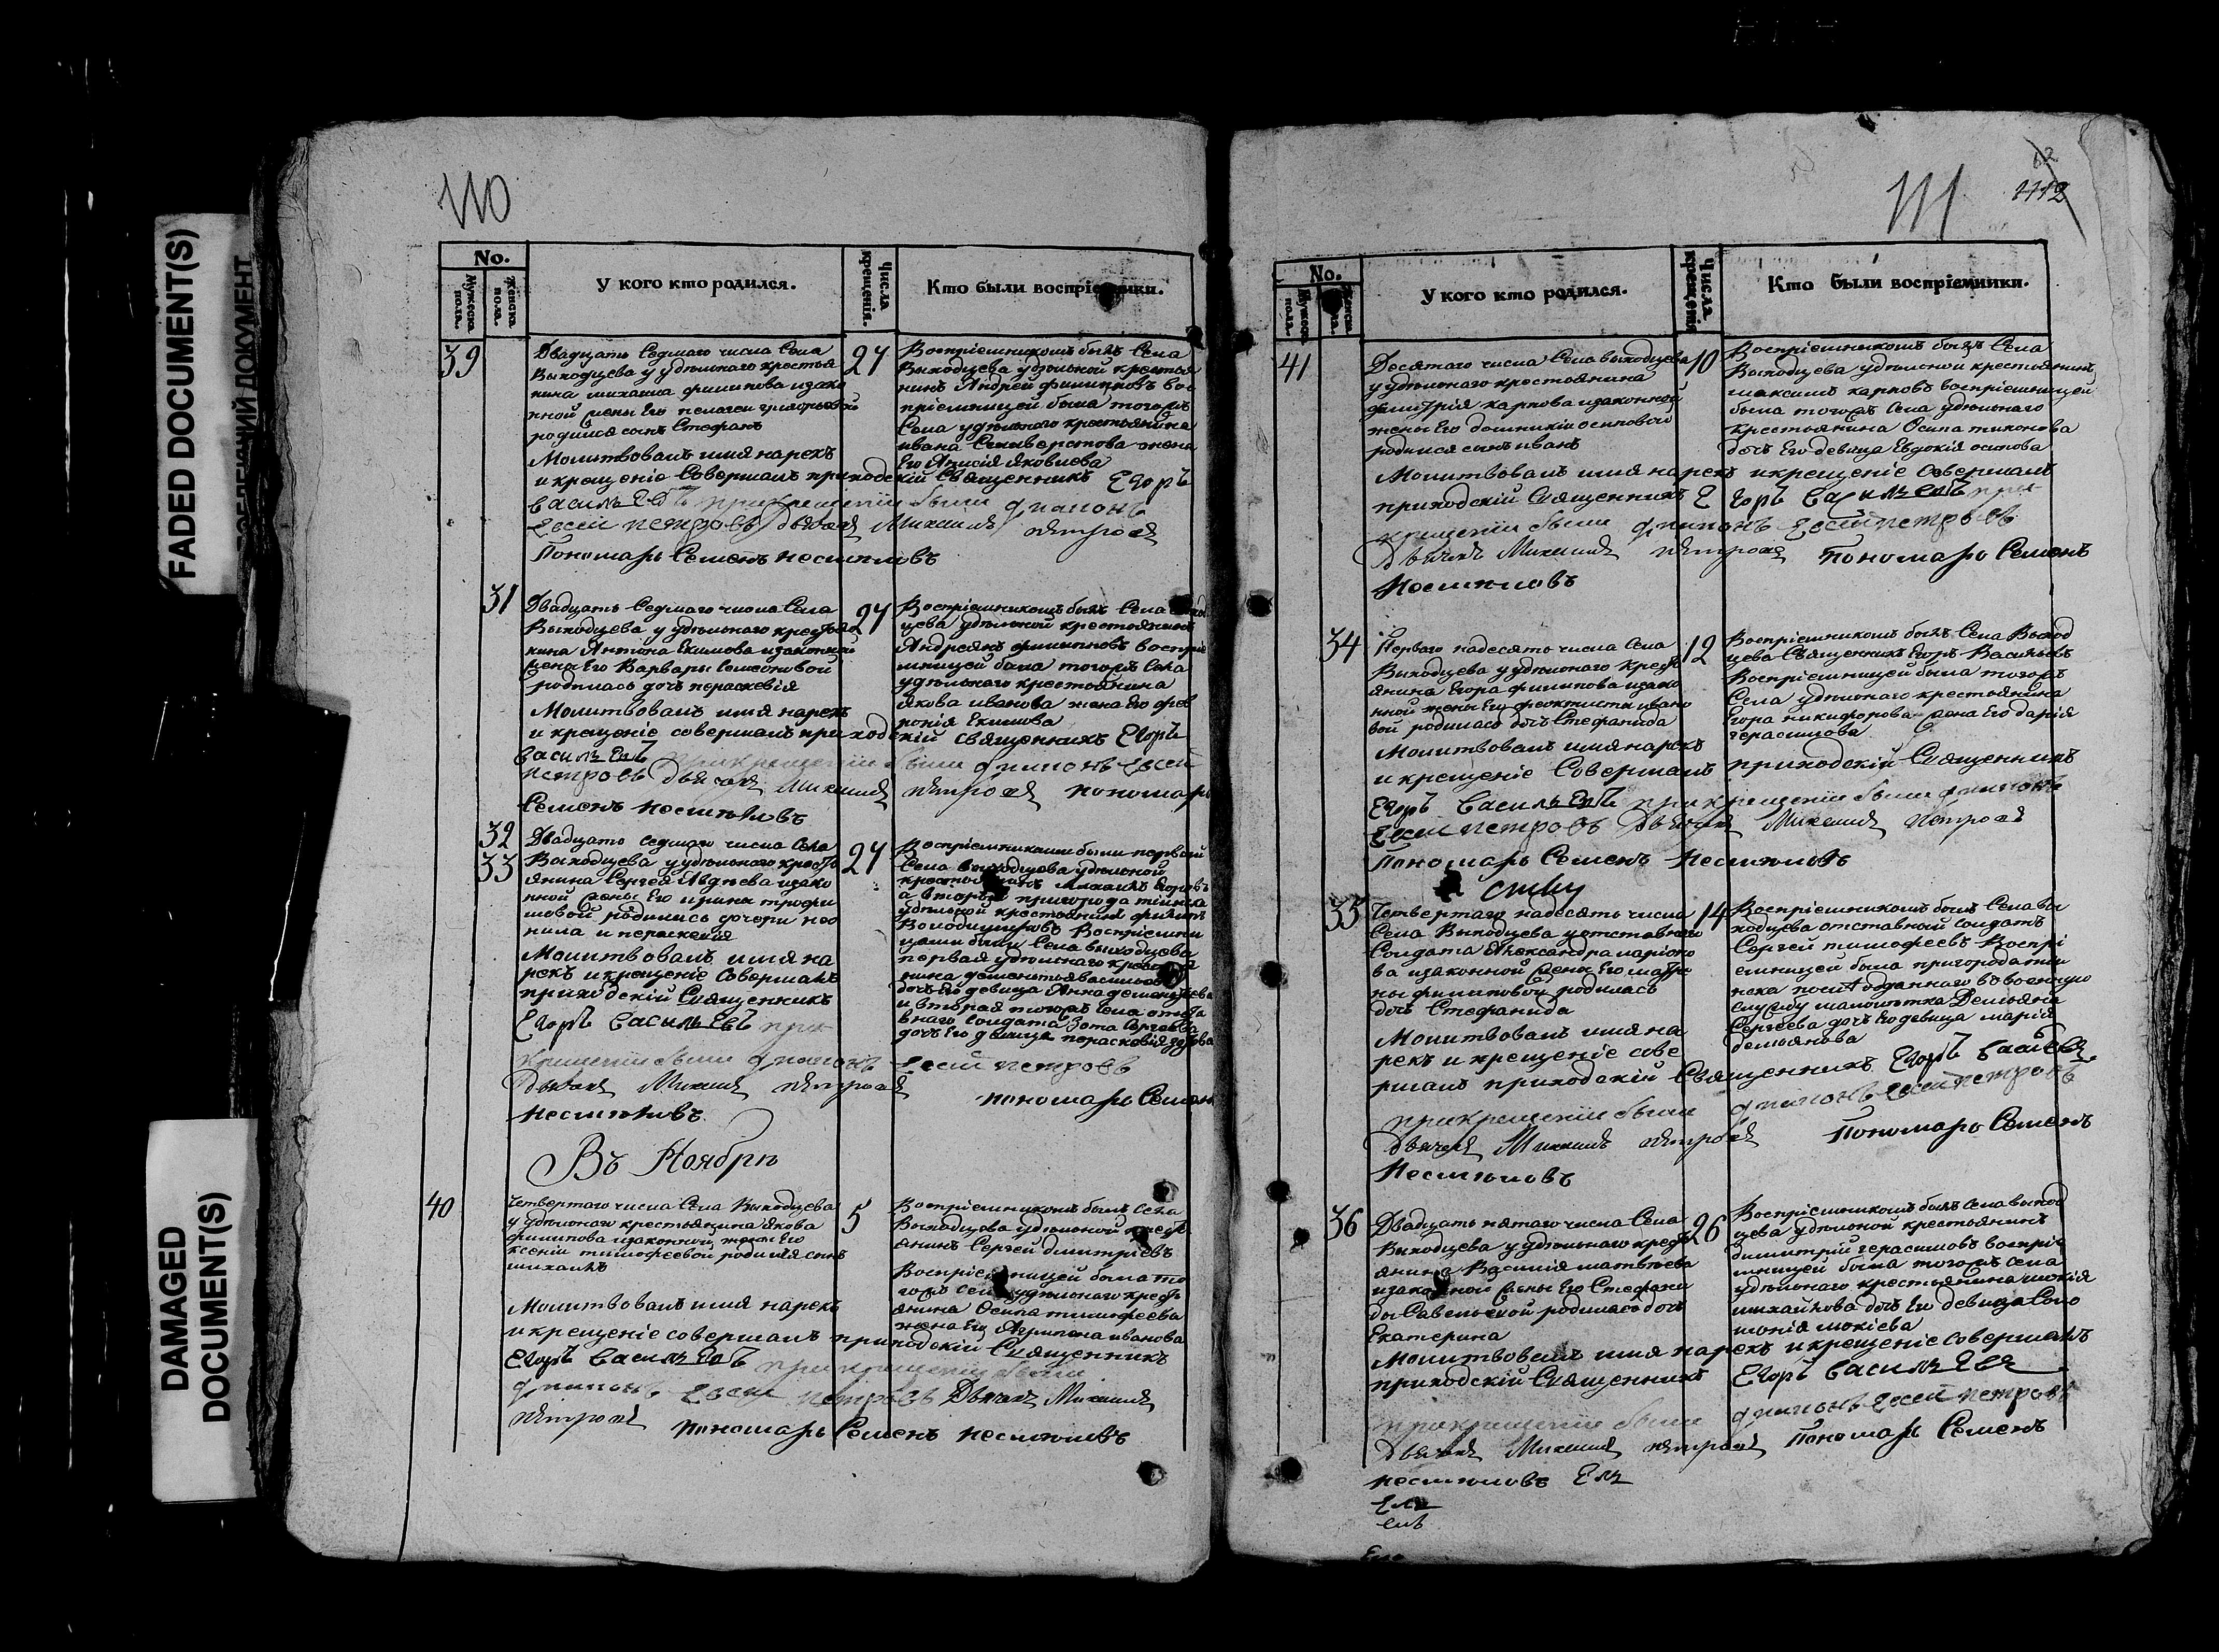 FADED DOCUMENT(S)
DAMAGED
DOCUMENT(S)
110
No.
Мужеска пола.
Женска пола.
У кого кто родился.
Числа крещенія.
Кто были воспріемники.
39
Двадцать Седмаго числа Села
Выходцева у удѣльнаго крестья
нина михаила филипова изако
нной жены Его пелагеи григорьевой
родился сынъ Стефанъ
Молитвовалъ имя нарекъ
и крещеніе Совершалъ приходскій Священникъ Егоръ
Васильевъ при крещеніи были діаконъ
Евсей петровъ дьячекъ Михаилъ петровъ
Пономарь Семенъ
27
Воспріемникомъ былъ Села
Выходцева удѣльной крестья
нинъ Андрей филиповъ вос
пріемницей была тогожъ
Села удѣльнаго крестьянина
ивана Селиверстова жена
Его Анисія Яковлева
31
Двадцать Седмаго числа Села
Выходцева у удѣльнаго крестья
нина Антона Екимова изаконной
жены Его Варвары Семеновой
родилась дочь параскевія
Молитвовалъ имя нарекъ
и крещеніе совершалъ приходскій священникъ Егоръ
Васильевъ при крещеніи были діаконъ Евсей
петровъ дьячекъ Михаилъ петровъ пономарь
Семенъ
27
Воспріемникомъ былъ Села
цева удѣльной крестьянинъ
Андреянъ филиповъ воспріе
мницей была тогожъ Села
удѣльнаго крестьянина
Якова иванова жена Его фев
ронія Екимова
32
33
Двадцать седмаго числа Села
Выходцева у удѣльнаго кресть
янина Сергея Авдѣева изако
нной жены Его ирины трофи
мовой родились дочери нео
нила и параскевія
Молитвовалъ имя на
рекъ и крещеніе Совершалъ
приходскій Священникъ
Егоръ Васильевъ при
крещеніи были діаконъ Евсей петровъ
Дьячекъ Михаилъ петровъ пономарь Семенъ
27
Воспріемниками были первой
Села Выходцева удѣльной
крестьянинъ Михаилъ Егоровъ
а второй пригорода тіинска
удѣльной крестьянинъ филипъ
Воспріемни
цами были Села выходцева
первая удѣльнаго крестья
нина дементья васильева
дочь Его девица Анна дементьева
и вторая тогожъ Села отста
внаго солдата Зота Сергеева
дочь Его девица парасковія зотова
Въ Ноябрѣ
40
Четвертаго числа Села Выходцева
у удѣльнаго крестьянина Якова
филипова изаконной жены Его
ксеніи тимофеевой родился сынъ
михаилъ
Молитвовалъ имя нарекъ
и крещеніе совершалъ приходскій Священникъ
Егоръ Васильевъ при крещеніи были
діаконъ Евсей петровъ Дьячекъ Михаилъ
петровъ пономарь Семенъ
5
Воспріемникомъ былъ Села
Выходцева удѣльной кресть
янинъ Сергей димитріевъ
Воспріемницей была то
гожъ села удѣльнаго кресть
янина Осипа тимофеева
жена Его Агрипена иванова
111
62
1112
No.
Мужеска пола.
Женска пола.
У кого кто родился.
Числа крещенія
Кто были воспріемники.
41
Десятаго числа Села выходцева
у удѣльнаго крестьянина
димитрія карпова изаконной
жены Его домникіи осиповой
родился сынъ иванъ
Молитвовалъ имя нарекъ и крещеніе Совершалъ
приходскій Священникъ Егоръ Васильевъ при
крещеніи были діаконъ Евсей петровъ
Дьячекъ Михаилъ петровъ Пономарь Семенъ
10
Воспріемникомъ былъ Села
Выходцева удѣльной крестьянинъ
максимъ карповъ воспріемницей
была тогожъ Села удѣльнаго
крестьянина Осипа тихонова
дочь Его девица Евдокія осипова
34
Перваго надесять числа Села
Выходцева у удѣльнаго кресть
янина Егора филипова изако
нной жены Его феоктисты ивано
вой родилась дочь Стефанида
Молитвовалъ имя нарекъ
и крещеніе Совершалъ приходскій Священникъ
Егоръ Васильевъ при крещеніи были діаконъ
Евсей петровъ Дьячекъ Михаилъ Петровъ
Пономарь Семенъ
12
Воспріемникомъ былъ Села Выход
цева Священникъ Егоръ Васильевъ
Воспріемницей была тогожъ
Села удѣльнаго крестьянина
Егора никифорова жена Его дарія
герасимова
35
Четвертаго надесять числа
Села Выходцева у отставнаго
Солдата Александра ларіоно
ва изаконной жены Его матре
ны филиповой родилась
дочь Стефанида
Молитвовалъ имя на
рекъ и крещеніе сове
ршалъ приходскій Священникъ Егоръ Васильевъ
при крещеніи были діаконъ Евсей петровъ
Дьячекъ Михаилъ петровъ Пономарь Семенъ
14
Воспріемникомъ былъ Села вы
ходцева отставной солдатъ
Сергей тимофеевъ Воспрі
емницей была пригорода тіи
нска отданнаго въ военную
службу Демьяна
Сергеева дочь Его девица марія
демьянова
36
Двадцать пятаго числа Села
Выходцева у удѣльнаго кресть
янина Василія матвѣева
изаконной жены Его Стефани
ды Савельевой родилась дочь
Екатерина
Молитвовалъ имя нарекъ и крещеніе совершалъ
приходскій Священникъ Егоръ Васильевъ
при крещеніи были діаконъ Евсей петровъ
Дьячекъ Михаилъ петровъ Пономарь Семенъ
26
Воспріемникомъ былъ Села выход
цева удѣльной крестьянинъ
димитрій герасимовъ воспріе
мницей была тогожъ села
удѣльнаго крестьянина мокія
михайлова дочь Его девица Соло
монія мокіева